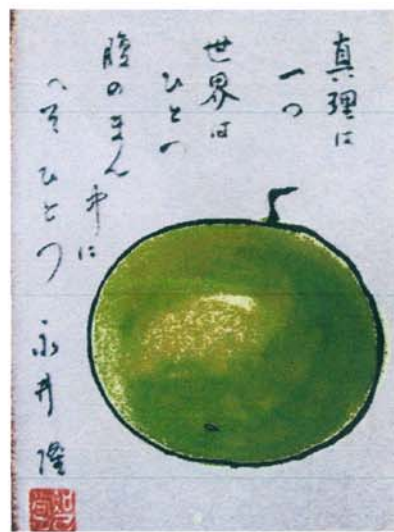 真理は
一つ
世界は
ひとつ
腹のまん中に
へそひとつ
永井隆